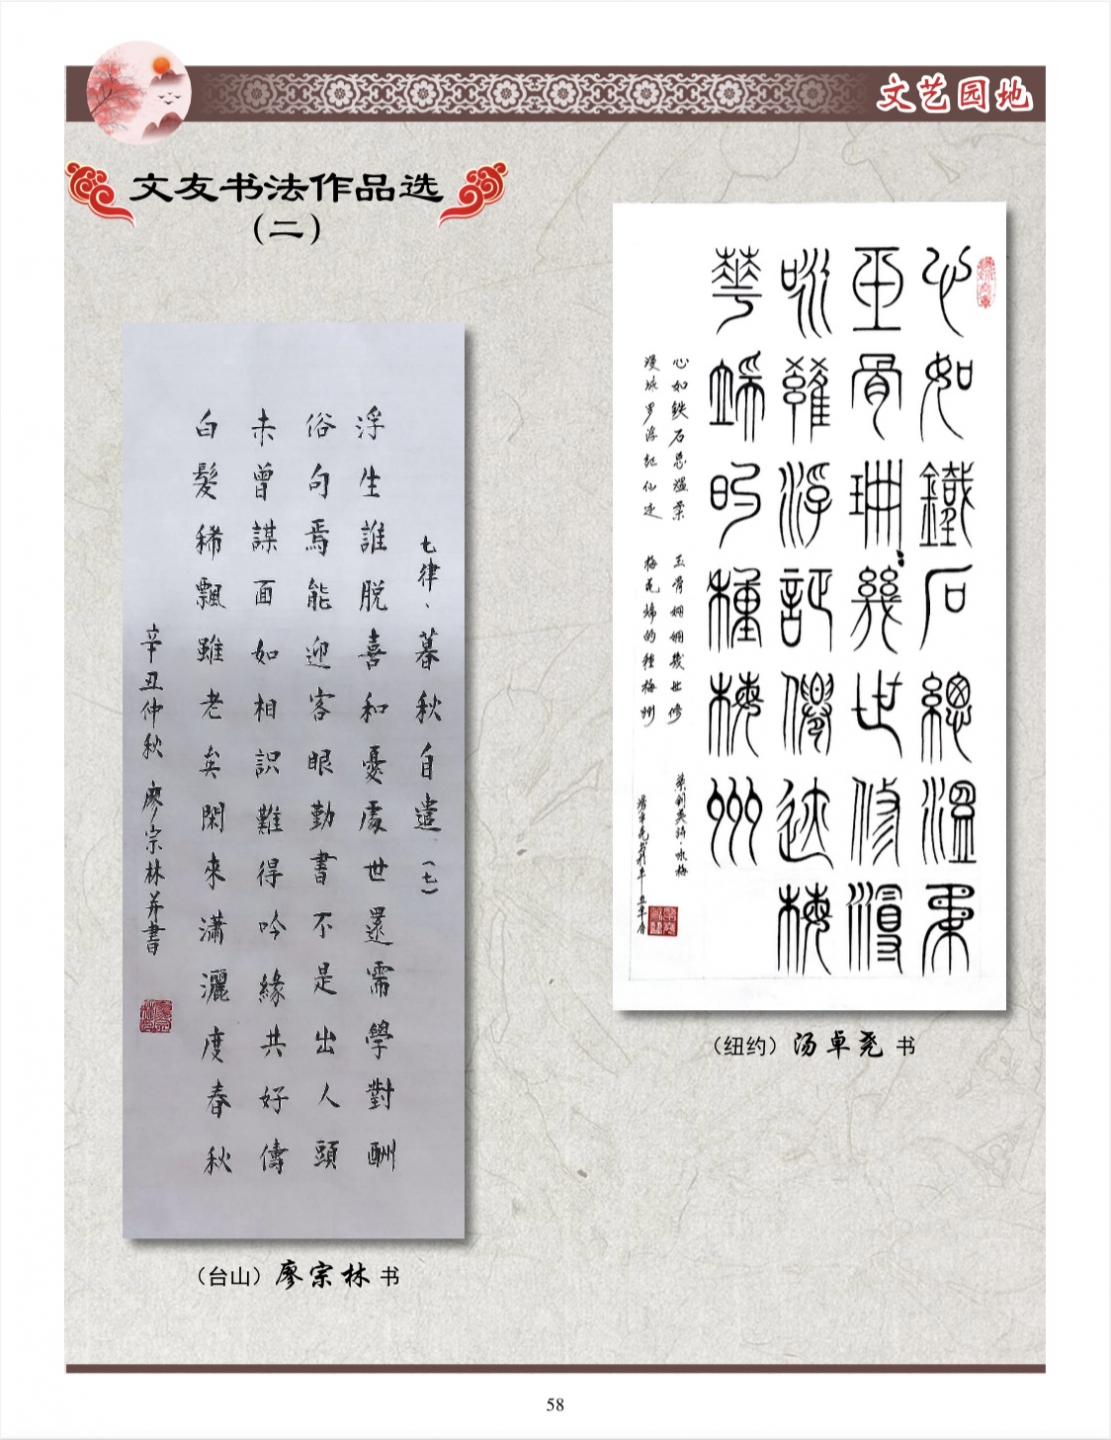 文艺园地
文友书法作品选
（二）
七律、暮秋自遣（七）
浮生誰脱喜和憂處世還需學對酬
俗句焉能迎客眼勤書不是出人頭
未曾謀面如相識難得吟緣共好儔
白髮稀飄雖老矣閑來瀟灑度春秋
辛丑仲秋 廖宗林并書
（台山）廖宗林 书
心如鐵石總溫柔
玉骨珊珊幾世修漫
詠羅浮記僊迹梅
華端的種梅州
心如鉄石总温柔 玉骨姗姗幾世修
漫咏罗浮记仙迹 梅花端的種梅州
（纽约）汤卓尧 书
58